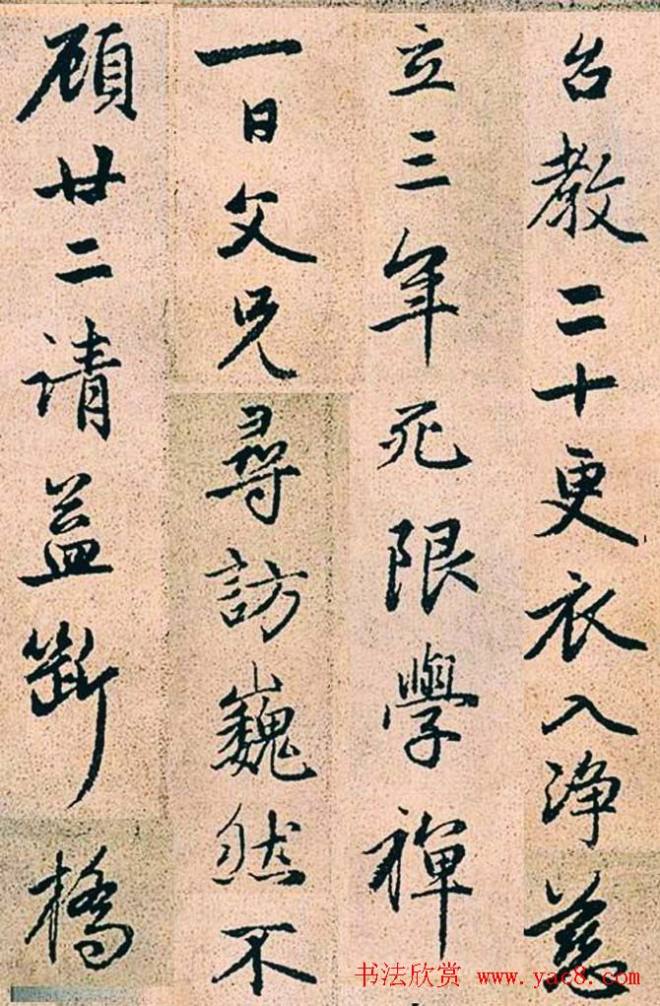 台教二十更衣入净慈
立三年死限學禪
一日父兄尋訪巍然不
顧廿二请益斷橋
书法欣赏 www.yac8.com